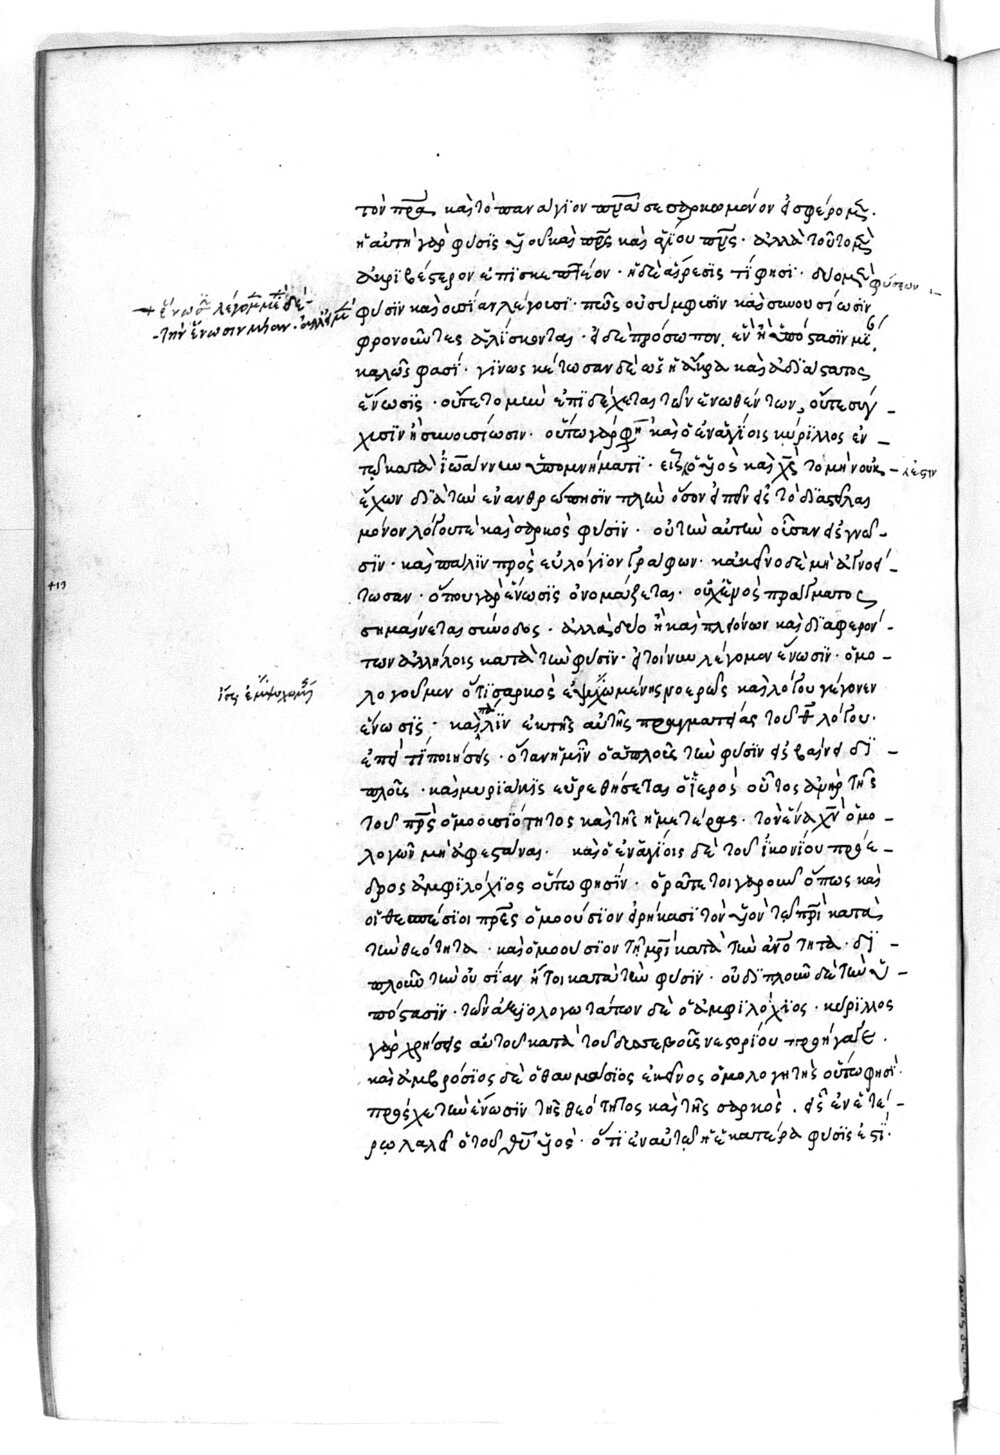 τὸν πρα καὶ τὸ παν άγϊον πνα σεσαρκωμένον εἰσφέρομεν.
ἡ αὐτὴ γὰρ φύσϊς υἱοῦ καὶ πρς καὶ ἁγίου πνς · ἀλλὰ τοῦτο μὲν
ἀκριβέστερον ἐπϊσκεπτέον · ἡ δὲ αἵρεσϊς τί φησϊ · δύο μὲν φύσεων
+ ἕνωσϊν λέγομεν μὲ δὲ
- τὴν ἕνωσιν μίαν · ἀλλὰ μὲ
φύσϊν καὶ οὐσίαν λέγουσϊ · πῶς οὐ σύμφυσϊν καὶ συνουσίωσϊν
φρονοῦντες ἁλίσκονται · εἰ δὲ πρόσωπον, ἓν ἢ ὑπόστασϊν μίαν,
καλῶς φασί · γϊνωσκέτωσαν δὲ ὡς ἡ ἄκρα καὶ ἀδϊάστατος
ἕνωσϊς · οὔτε τομὴν ἐπϊδέχεται τῶν ἑνωθέντων, οὔτε σύγ-
χυσϊν ἢ συνουσίωσιν · οὕτω γάρ φη καὶ ὁ ἐν ἁγίοις κύρϊλλος ἐν
τῷ κατὰ ϊωάννην ὑπομνήματϊ · εἷς ὁ υἱὸς καὶ χς τομὴν οὐκ
ἔχων δϊὰ τὴν ἐνανθρώπησϊν πλὴν ὅσον εἰπεῖν εἰς τὸ δϊαστεῖλαι
μόνον λόγου τὲ καὶ σαρκὸς φύσϊν · οὐ τὴν αὐτὴν οὖσαν εἰς γνῶ-
σϊν · καὶ πάλϊν πρὸς εὐλόγϊον γράφων · κἀκεῖνο δὲ μὴ ἀγνοεί-
τωσαν · ὅπου γὰρ ἕνωσϊς ὀνομάζεται · οὐχ ἑνὸς πράγματος
σημαίνεται σύνοδος · ἀλλὰ δύο ἢ καὶ πλειόνων καὶ δϊαφερόν-
των ἀλλήλοις κατὰ τὴν φύσϊν · εἰ τοίνυν λέγομεν ἕνωσϊν · ὁμο-
λογοῦμεν ὅτϊ σαρκὸς ἐψυχωμένης νοερῶς καὶ λόγου γέγονεν
ἕνωσϊς · καὶ πάλϊν ἐκ τῆς αὐτῆς πραγματείας τοῦ θ λόγου ·
ἐπεὶ τί ποιήσεις · ὅταν ἡμῖν ὁ ἁπλοῦς τὴν φύσϊν εἰσβαίνει δϊ-
πλοῦς · καὶ μυρϊάκϊς εὑρεθήσεται ὁ ϊερὸς οὗτος ἀνὴρ τῆς
τοῦ πρς ὁμοουσϊότητος καὶ τῆς ἡμετέρας · τὸν ἕνα χν ὁμο-
λογῶν μὴ ἀφεστάναι. καὶ ὁ ἐν ἁγίοις δὲ τοῦ ϊκονίου πρόε-
δρος ἀμφϊλόχϊος οὕτω φησϊν · ὁρᾶτε τοιγαροῦν ὅπως καὶ
οἱ θεσπέσϊοι πρες ὁμοούσϊον εἰρήκασϊ τὸν υἱὸν τῷ πρϊ κατὰ
τὴν θεότητα · καὶ ὁμοούσϊον τῇ μρϊ κατὰ τὴν ἀνότητα · δϊ-
πλοῦν τὴν οὐσίαν ἤτοι κατὰ τὴν φύσϊν · οὐ δϊπλοῦν δὲ τὴν ὑ-
πόστασϊν · τῶν ἀξϊολογωτάτων δὲ ὁ ἀμφϊλόχϊος · κύρϊλλος
γὰρ χρήσεις αὐτοῦ κατὰ τοῦ δυσσεβοῦς νεστορίου προήγαγε.
καὶ ἀμβρόσϊος δὲ ὁ θαυμάσϊος ἐκεῖνος ὁμολογητὴς οὕτω φησϊ·
προέχε τὴν ἕνωσϊν τῆς θεότητος καὶ τῆς σαρκὸς. εἷς ἐν ἑκατέ-
ρῳ λαλεῖ ὁ τοῦ θυ υἱὸς · ὅτϊ ἐν αὐτῷ ἡ ἑκατέρα φύσϊς ἐστϊ·
λεξιν
ἴσως ἐμψυχωμένης